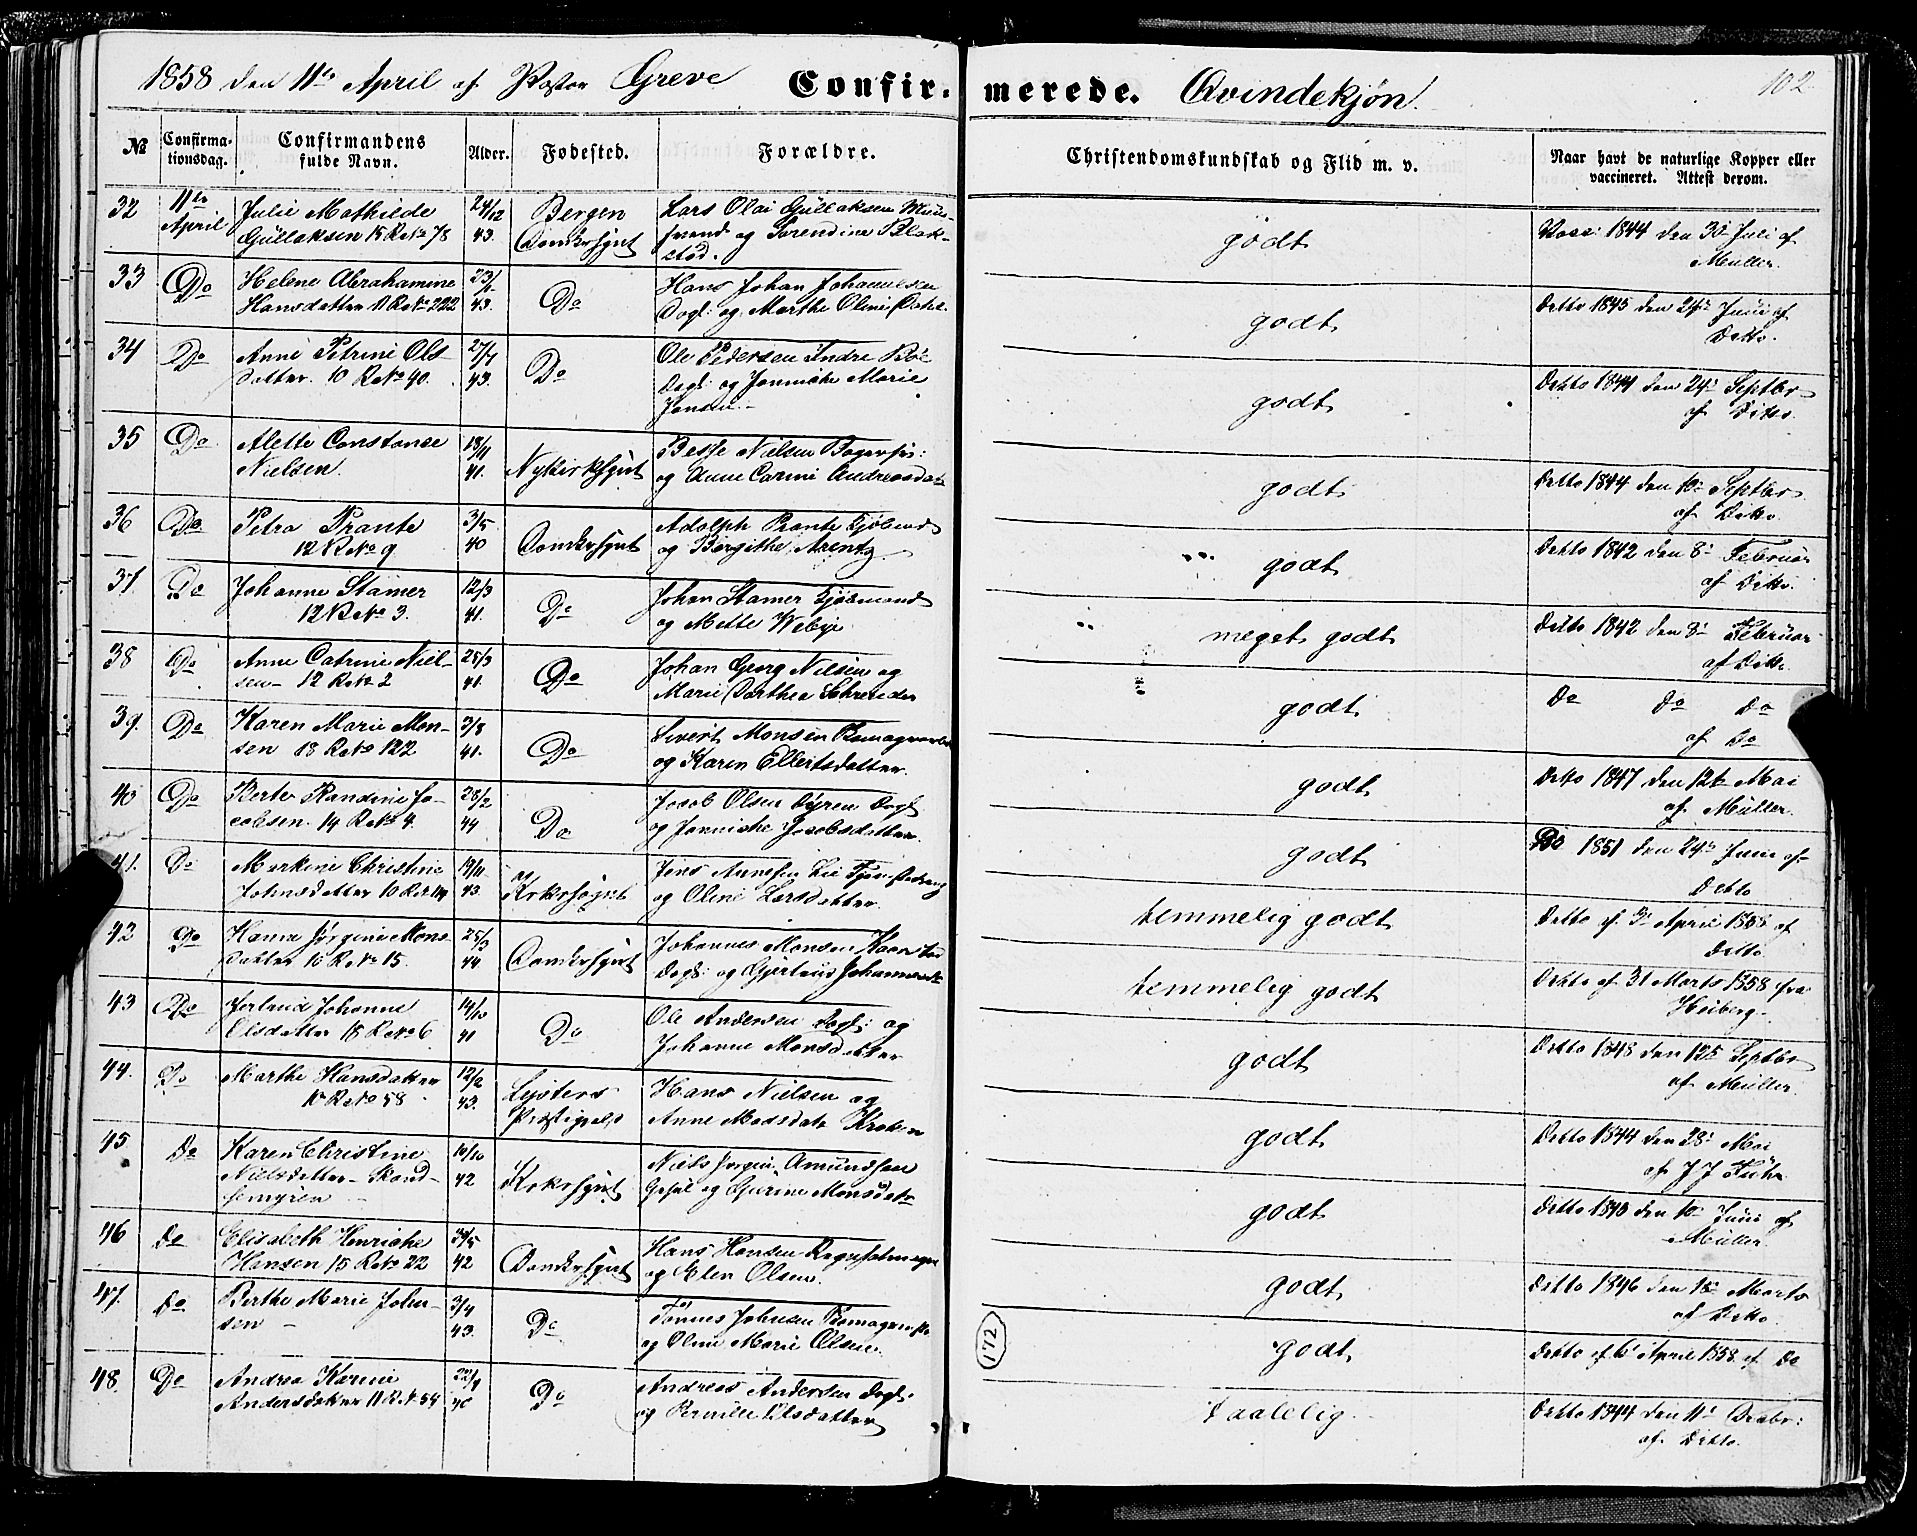 1858 den 11te April af Pastor Greve Confirmerede. Qvindekjøn.
102
№ Confirmationsdag. Confirmandens fulde Navn. Alder. Fødested. Forældre. Christendomskundskab og Flid m. v. Naar havt de naturlige Kopper eller vaccineret. Attest derom.
32 11te Julie Mathilde 24/12 Bergen Lars Olai Gullaksen
April Gullaksen 15 R No 78 43. Domkrsgnt og Sørendine
godt
1844 den 30 Juli af
Müller.
33 Do Helene Abrahamine 43. Do Hans Johan Johannesen
Hansdatter 11 R No 222 Dagl: og Marthe Oline
godt
Ditto 1845 den 24de Juni af
Ditto.
34 Do Anne Petrine Ols- 27/7 Do Ole Pedersen Indre Bøe
datter. 10 R No 40. 43. Dagl: og Jannicke Marie
Jansen.
godt
Ditto 1844 den 24de Septbr
af Ditto.
35 Do Alette Constance 18/11 Nykirksgnt Nielsen
Nielsen. 41. og Anne Carine Andreasdatr
godt
Ditto 1844 den Septbr
af Ditto.
36 Do Petra Prante 3/5 Domkrsgnt Adolph Prante Kjøbmd
12 R No 9 40 og Birgithe Arentz
godt
Ditto 1842 den 8de Februar
af Ditto.
37. Do Johanne Stamer 12/3 Do Johan Stamer Kjøbmand
12 R No 3. 41. og Mette Webye
meget godt
Ditto 1842 den 8de Februar
af Ditto.
38 Do Anne Catrine Niel- 25/3 Do Johan Georg Nielsen og
sen 12 R No 2 41. Marie Dorthea Schreuder
godt
Do Do Do
af Do
39. Do Karen Marie Mon- 3/8 Do Sivert Monsen
sen 18 R No 122 41. og Karen Ellertsdatter.
godt
Ditto 1847 den 12te Mai
af Müller.
40 Do Berte Randine Ja- 28/2 Do Jacob Olsen Dyren Dagl
cobsen. 14 R No 4. 44 og Jannicke Jacobsdatter.
godt
Do 1851 den 24de Juni af
Ditto
41. Do Christine 19/11 Krkrsognt Jens
Johnsdatter 10 R 43 og Oline Larsdatter.
temmelig godt
Ditto af 3de April 1858 af
Ditto
42 Do Hanne Jørgine Mons- 25/3 Domkrsgnt Johannes Monsen
datter R No 15. 44 Dagl: og
temmelig godt
Ditto af 31 Marts 1858 fra
Heiberg.
43 Do Johanne 14/10 Do Ole Andersen Dagl: og
Olsdatter 18 R No 6 41 Johanne Monsdatter
godt
Ditto 1848 den 12te Septbr
af Müller.
44. Do Marthe Hansdatter 12/2 Lysters Hans Nielsen og
R No 58 43. Præstigjeld Anne Madsdatr Kroken
godt
Ditto 1844 den 28de Mai
af J J
45 Do Karen Christine 10/10 Krkrsgnt Niels Jørgen Amundsen
Nielsdatter 42 og Monsdatr
godt
Ditto den Juni af
Müller.
46 Do Elisabeth Henricke 30/5 Domkrsgnt Hans Hansen
Hansen 15 R No 22 42 og Elen Olsen.
godt
Ditto 1846 den Marts
af Ditto.
47. Do Berthe Marie John- 3/4 Do Tønnes Johnsen
sen 43. og Oline Marie Olsen.
172
godt
Ditto af 6te April 1858 af Do
48. Do Andrea Karine 22/9 Do Andreas Andersen Dagl:
Andersdatter 11 R No 54 40 og Pernille Olsdatter
taalelig.
Ditto 1844 den 11te Decbr:
af Ditto.